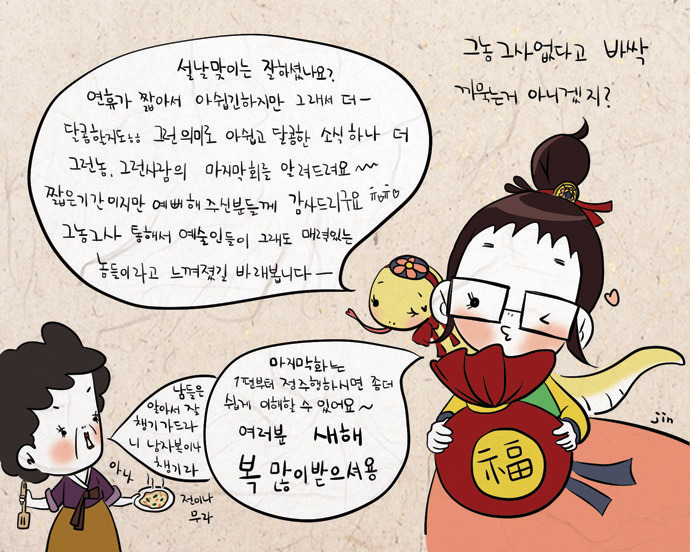 그놈 그사 없다고 바싹
까묵는거 아니겠지?
설날맞이는 잘하셨나요?
연휴가 짧아서 아쉽긴하지만 그래서 더ー
달콤할지도ㅎㅎ 그런의미로 아쉽고 달콤한 소식하나 더
그런놈, 그런사람의 마지막회를 알려드려요~~
짧은기간이지만 예뻐해주신분들께 감사드리구요 ㅠㅂㅠ♡
그놈그사 통해서 예술인들이 그래도 매력있는
놈들이라고 느껴졌길 바래봅니다ー
마지막화는
1편부터 정주행하시면 좀더
쉽게 이해할 수 있어요~
여러분 새해
복 많이받으셔용
남들은
알아서 잘
챙기가드라
니 남자복이나
챙기라
아나
전이나
무라
福
jin